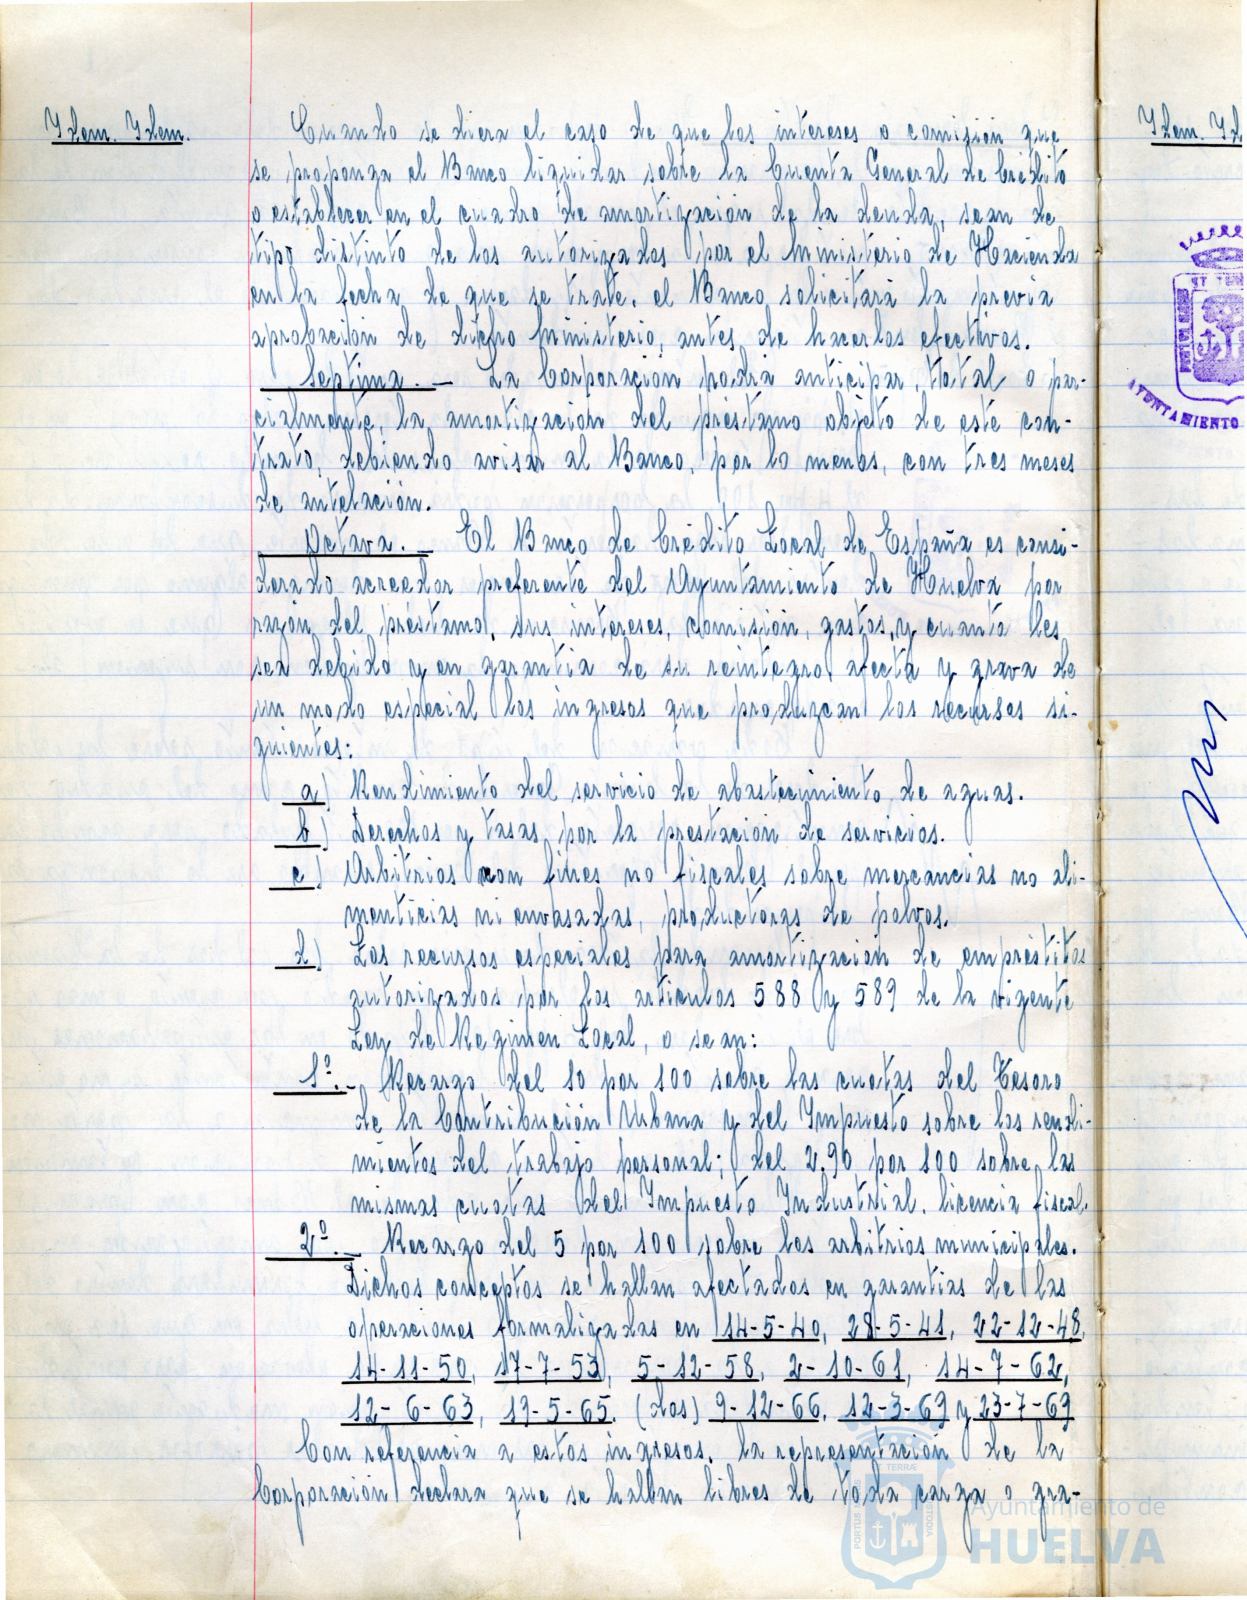 Idem. Idem.
Cuando se diera el caso de que los intereses o comisión que
se proponga el Banco liquidar sobre la Cuenta General de Crédito
o establecer en el cuadro de amortización de la deuda, sean de
tipo distinto de los autorizados por el Ministerio de Hacienda
en la fecha de que se trate, el Banco solicitará la previa
aprobación de dicho Ministerio, antes de hacerlos efectivos.
Septima.- La Corporación podrá anticipar, total o par-
cialmente, la amortización del préstamo objeto de este con-
trato, debiendo avisar al Banco, por lo menos, con tres meses
de antelación.
Octava.- El Banco de Crédito Local de España es consi-
derado acreedor preferente del Ayuntamiento de Huelva por
razón del préstamo, sus intereses, comisión, gastos, y cuanto les
sea debido y en garantia de su reintegro, afecta y grava de
un modo especial los ingresos que produzcan los recursos si-
guientes:
a) Rendimiento del servicio de abastecimiento de aguas.
b) Derechos y tasas por la prestación de servicios.
c) Arbitrios con fines no fiscales sobre mercancias no ali-
menticias ni envasadas, productoras de polvos.
d) Los recursos especiales para amortización de empréstitos
autorizados por los articulos 588 y 589 de la vigente
Ley de Regimen Local, o sean:
1º.- Recargo del 10 por 100 sobre las cuotas del Tesoro
de la Contribución Urbana y del Impuesto sobre los rendi-
mientos del trabajo personal; del 2.90 por 100 sobre las
mismas cuotas del Impuesto Industrial, licencia fiscal.
2º.- Recargo del 5 por 100 sobre los arbitrios municipales.
Dichos conceptos se hallan afectados en garantias de las
operaciones formalizadas en 14-5-40, 28-5-41, 22-12-48,
14-11-50, 17-7-53, 5-12-58, 2-10-61, 14-7-62,
12-6-63, 19-5-65, (dos) 9-12-66, 12-3-69 y 23-7-69
Con referencia a estos ingresos, la representación de la
Corporación declara que se hallan libres de toda carga o gra-
Idem. Id
AYUNTAMIENTO
Ayuntamiento de
HUELVA